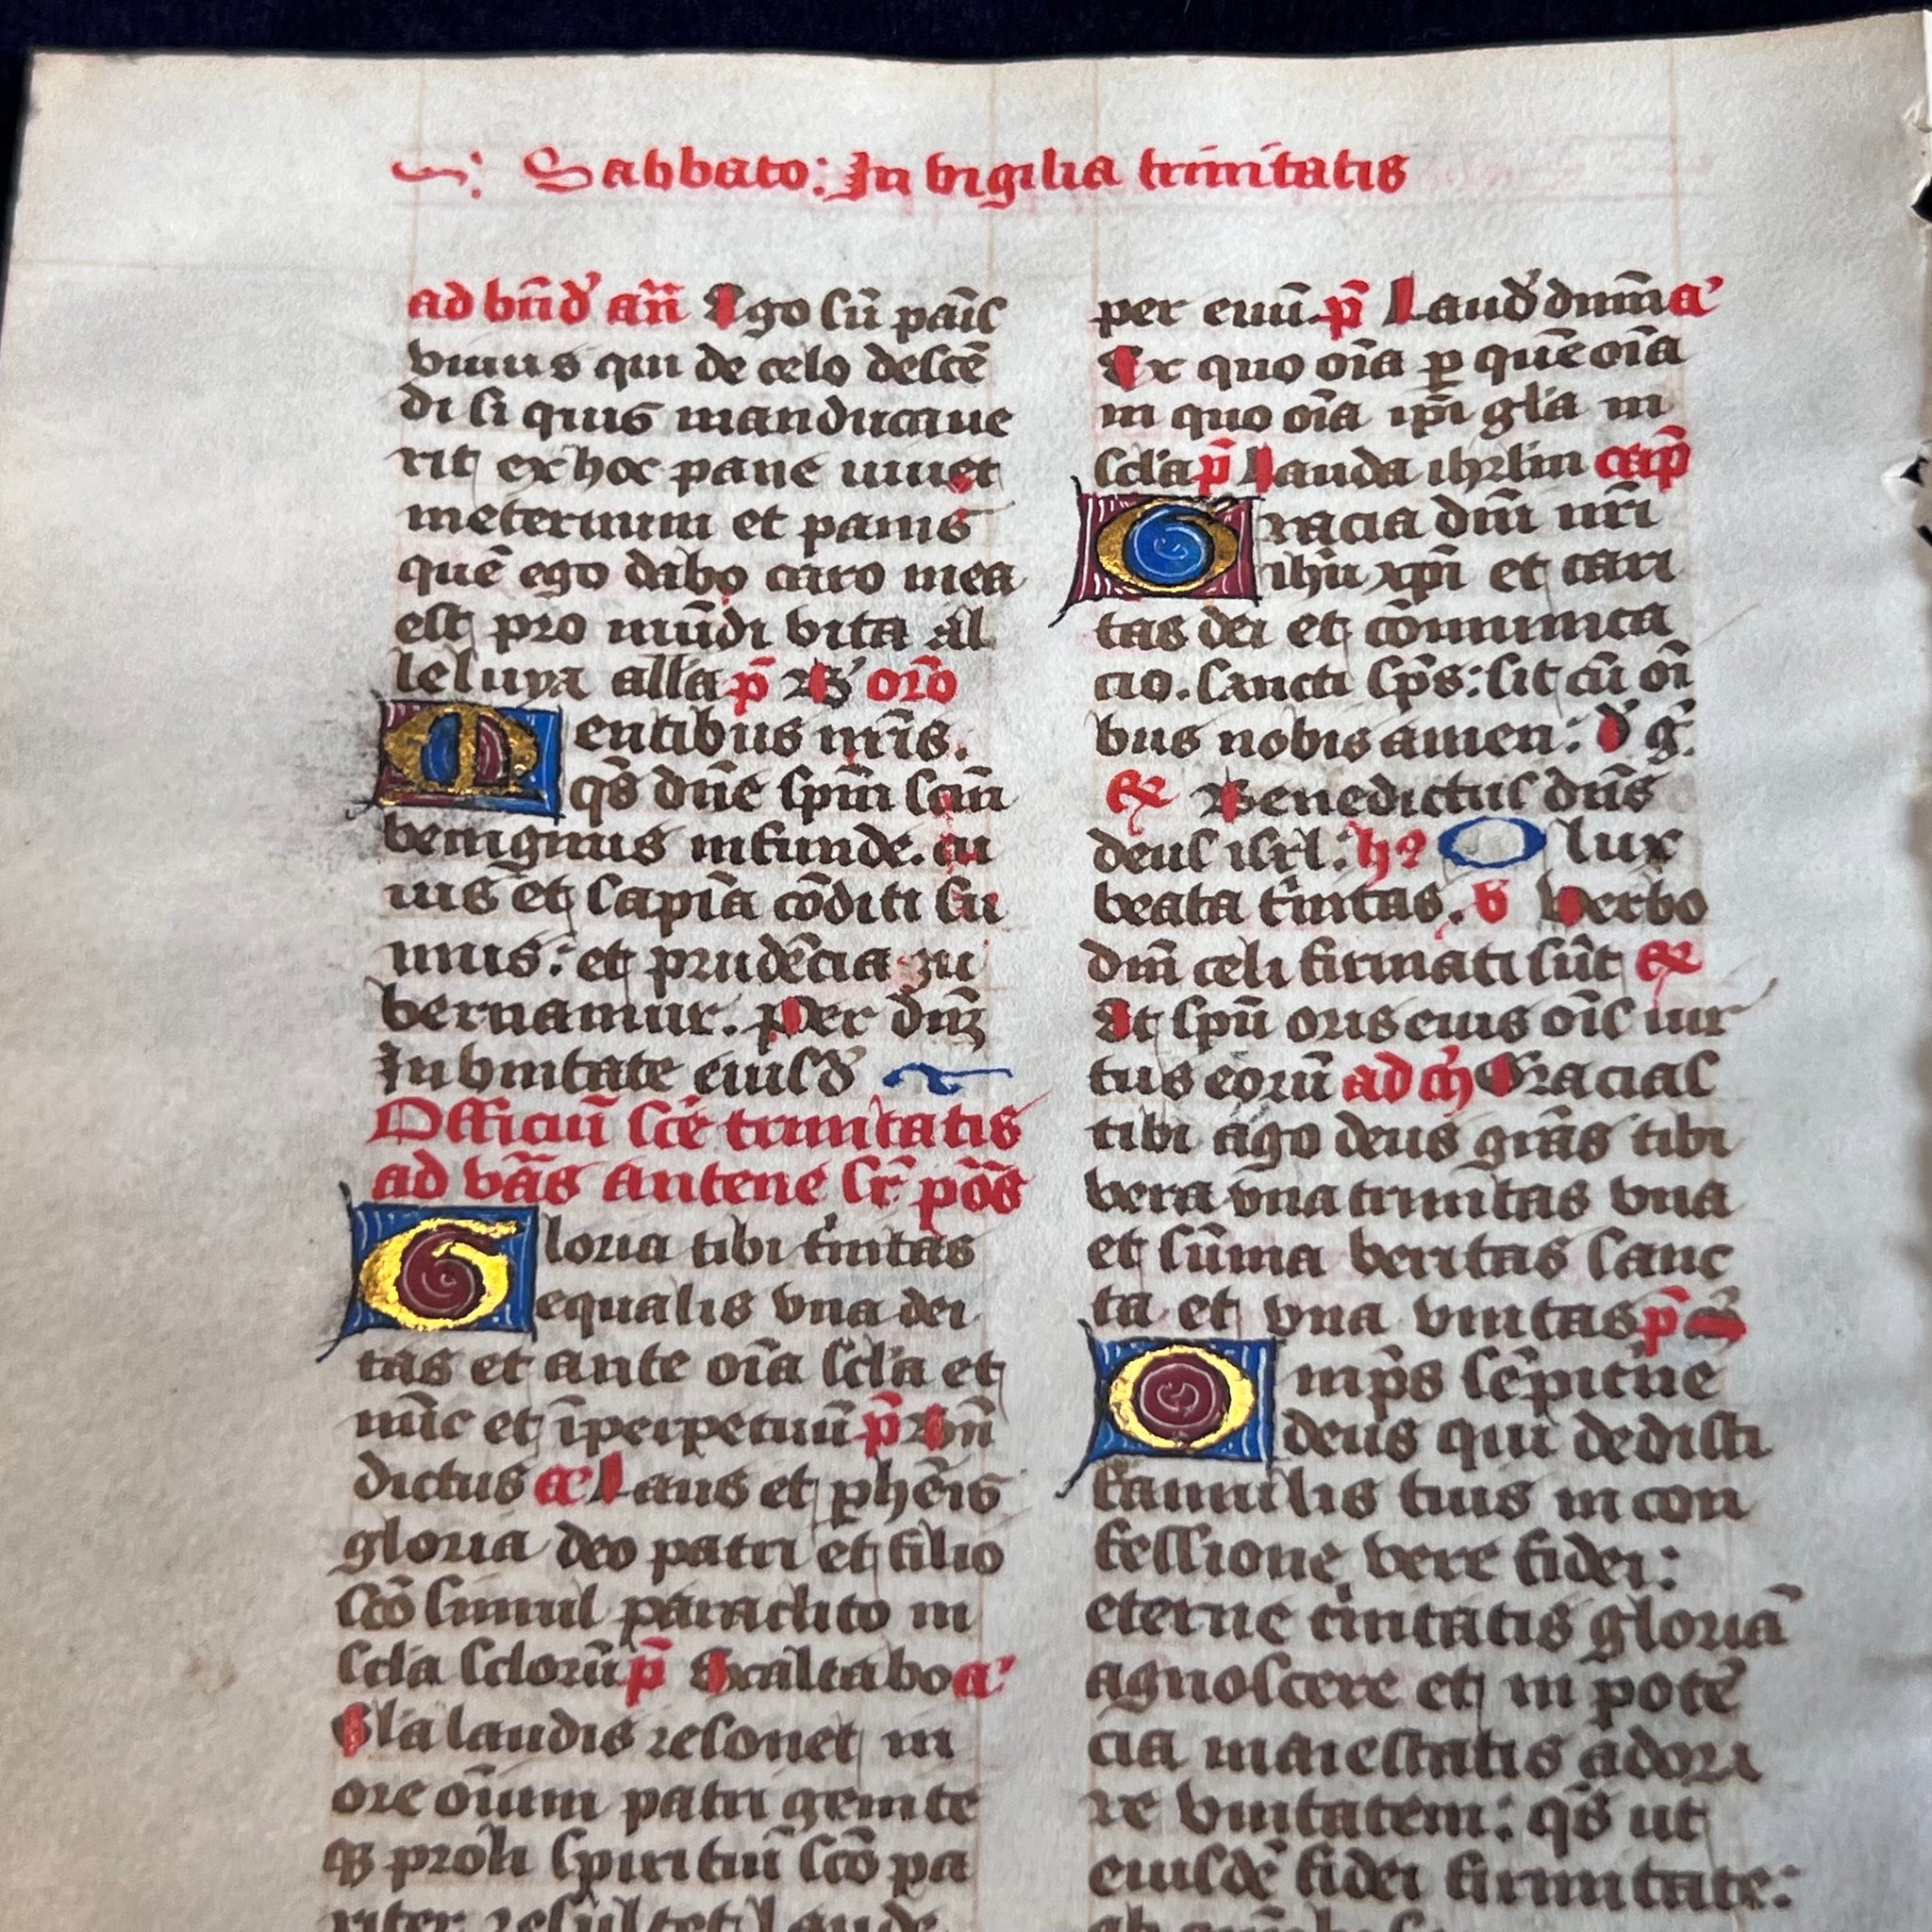 Sabbato: In vigilia trinitatis
ad bn̄d' an̄ Ego sū pāis
viuus qui de celo descē
di si quis manducaue
rit ex hoc pane uiuet
ineternum et panis
quē ego dabo caro mea
est pro mūdi vita al
leluya allā p̄ B' or̄o
Mentibus nr̄is.
q̄s dn̄e spm̄ scm̄
benignus infunde. cu
ius et sapīa cōditi su
mus: et prudēcia gu
bernamur. Per dm̄
In vnitate eiusd'
Officiū scē trinitatis
ad vās Antene sr̄ pōs
Gloria tibi t'nitas
equalis vna dei
tas et ante oīa scla et
nūc et īperpetuū p̄ Bn̄
dictus a' Laus et phēis
gloria deo patri et filio
scō simul paraclito in
scla sclorū p̄ Exaltabo a'
Gla laudis resonet in
ore oīum patri genite
qȝ proli spiritui scō pa
riter resultet laude
per euū p̄ Laud' dnm̄ a'
Ex quo oīa ꝑ quē oīa
in quo oīa ip̄i glā in
scla p̄ Lauda ihrlm cap̄
Gracia dm̄ nr̄i
ihū xp̄i et cari
tas dei et cōmunica
cio. sancti sp̄s: sit cū oī
bus nobis amen: D' g'.
Benedictus dn̄s
deus isrl: h9 O lux
beata t'nitas. v Verbo
dm̄ celi firmati sūt
Et spū oris eius oīs uir
tus eorū ad m̄ Gracias
tibi ago deus grās tibi
vera vna trinitas vna
et sūma veritas sanc
ta et vna vnitas p̄
Omp̄s sēpit'ne
deus qui dedisti
famulis tuis in con
fessione vere fidei:
eterne t'nitatis gloriā
agnoscere et in potē
cia maiestatis adora
re vnitatem: q̄s ut
eiusdē fidei firmitate: